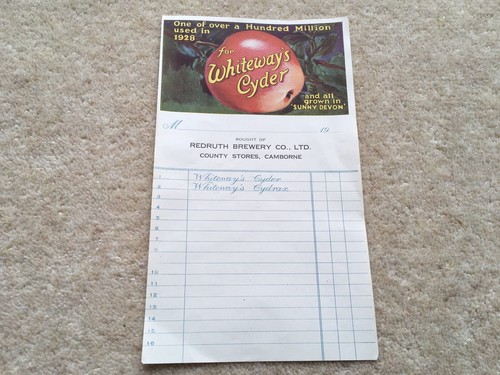 One of over a Hundred Million
used in
1928
for
Whiteway's
Cyder
and all
grown in
"SUNNY DEVON"
M 19
BOUGHT OF
REDRUTH BREWERY CO., LTD.
COUNTY STORES, CAMBORNE
1 Whiteway's Cyder
2 Whiteway's Cydrax
3
4
5
6
7
8
9
10
11
12
13
14
15
16